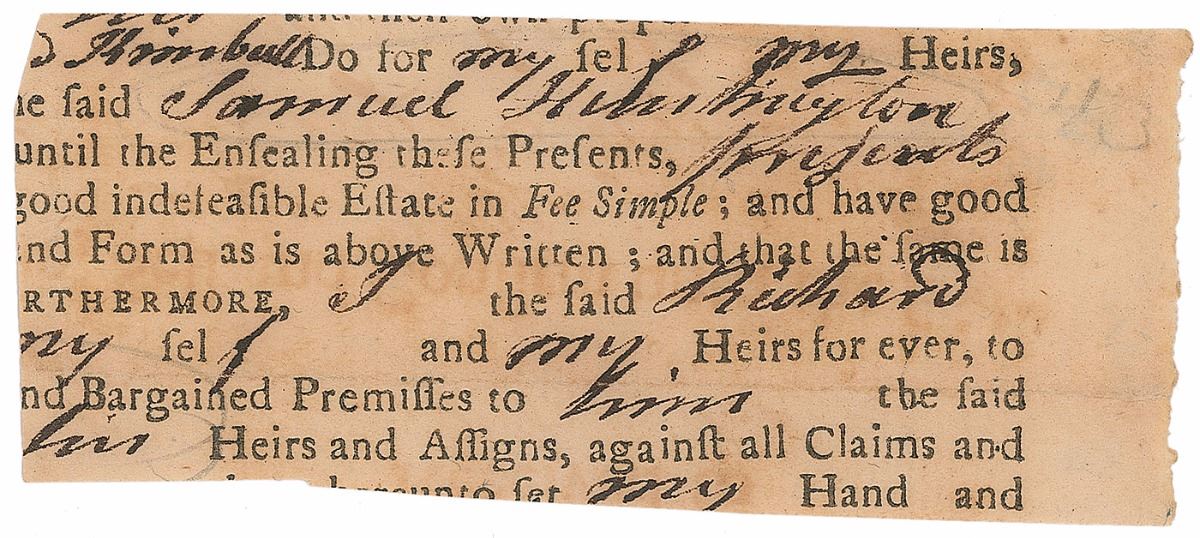 and their own proper
Kimball Do for my ſel f my Heirs,
he ſaid Samuel Huntington
until the Enſealing theſe Preſents, presents
good indefeaſible Eſtate in Fee Simple; and have good
and Form as is above Written; and that the ſame is
RTHERMORE, I the ſaid Richard
my ſel f and my Heirs for ever, to
nd Bargained Premiſſes to him the ſaid
his Heirs and Aſſigns, againſt all Claims and
hereunto ſet my Hand and